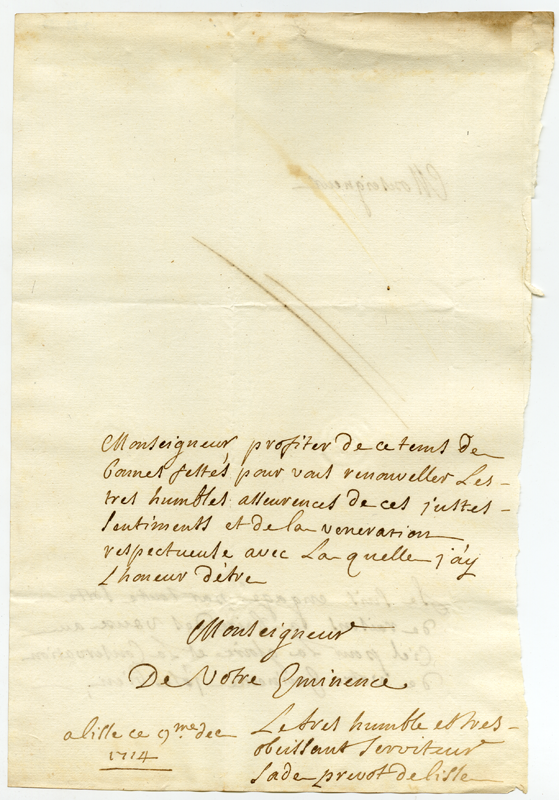 Monseigneur profiter de ce tems de
bonnes festes pour vous renouveller Les
tres humbles asseurences de ces justes
sentiments et de la veneration
respectueuse avec La quelle j'ay
Lhoneur d'être
Monseigneur
De Votre Eminence
a lille ce 9me dec Le tres humble et tres
1714 obeissant Serviteur
Sade prevot de lisle